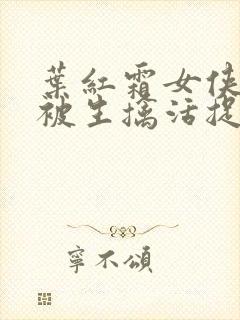 葉紅霜女俠
被生擒活捉
寧不頌